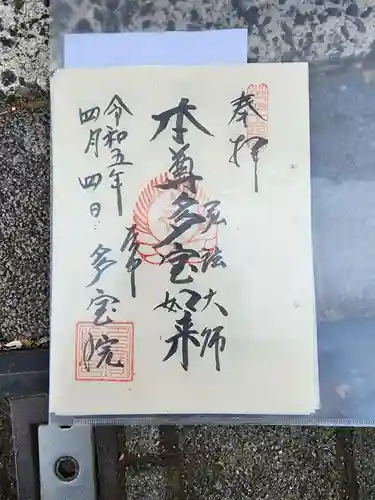 奉拝
弘法大師
本尊多宝如来
令和五年
四月四日
庚申
多宝院